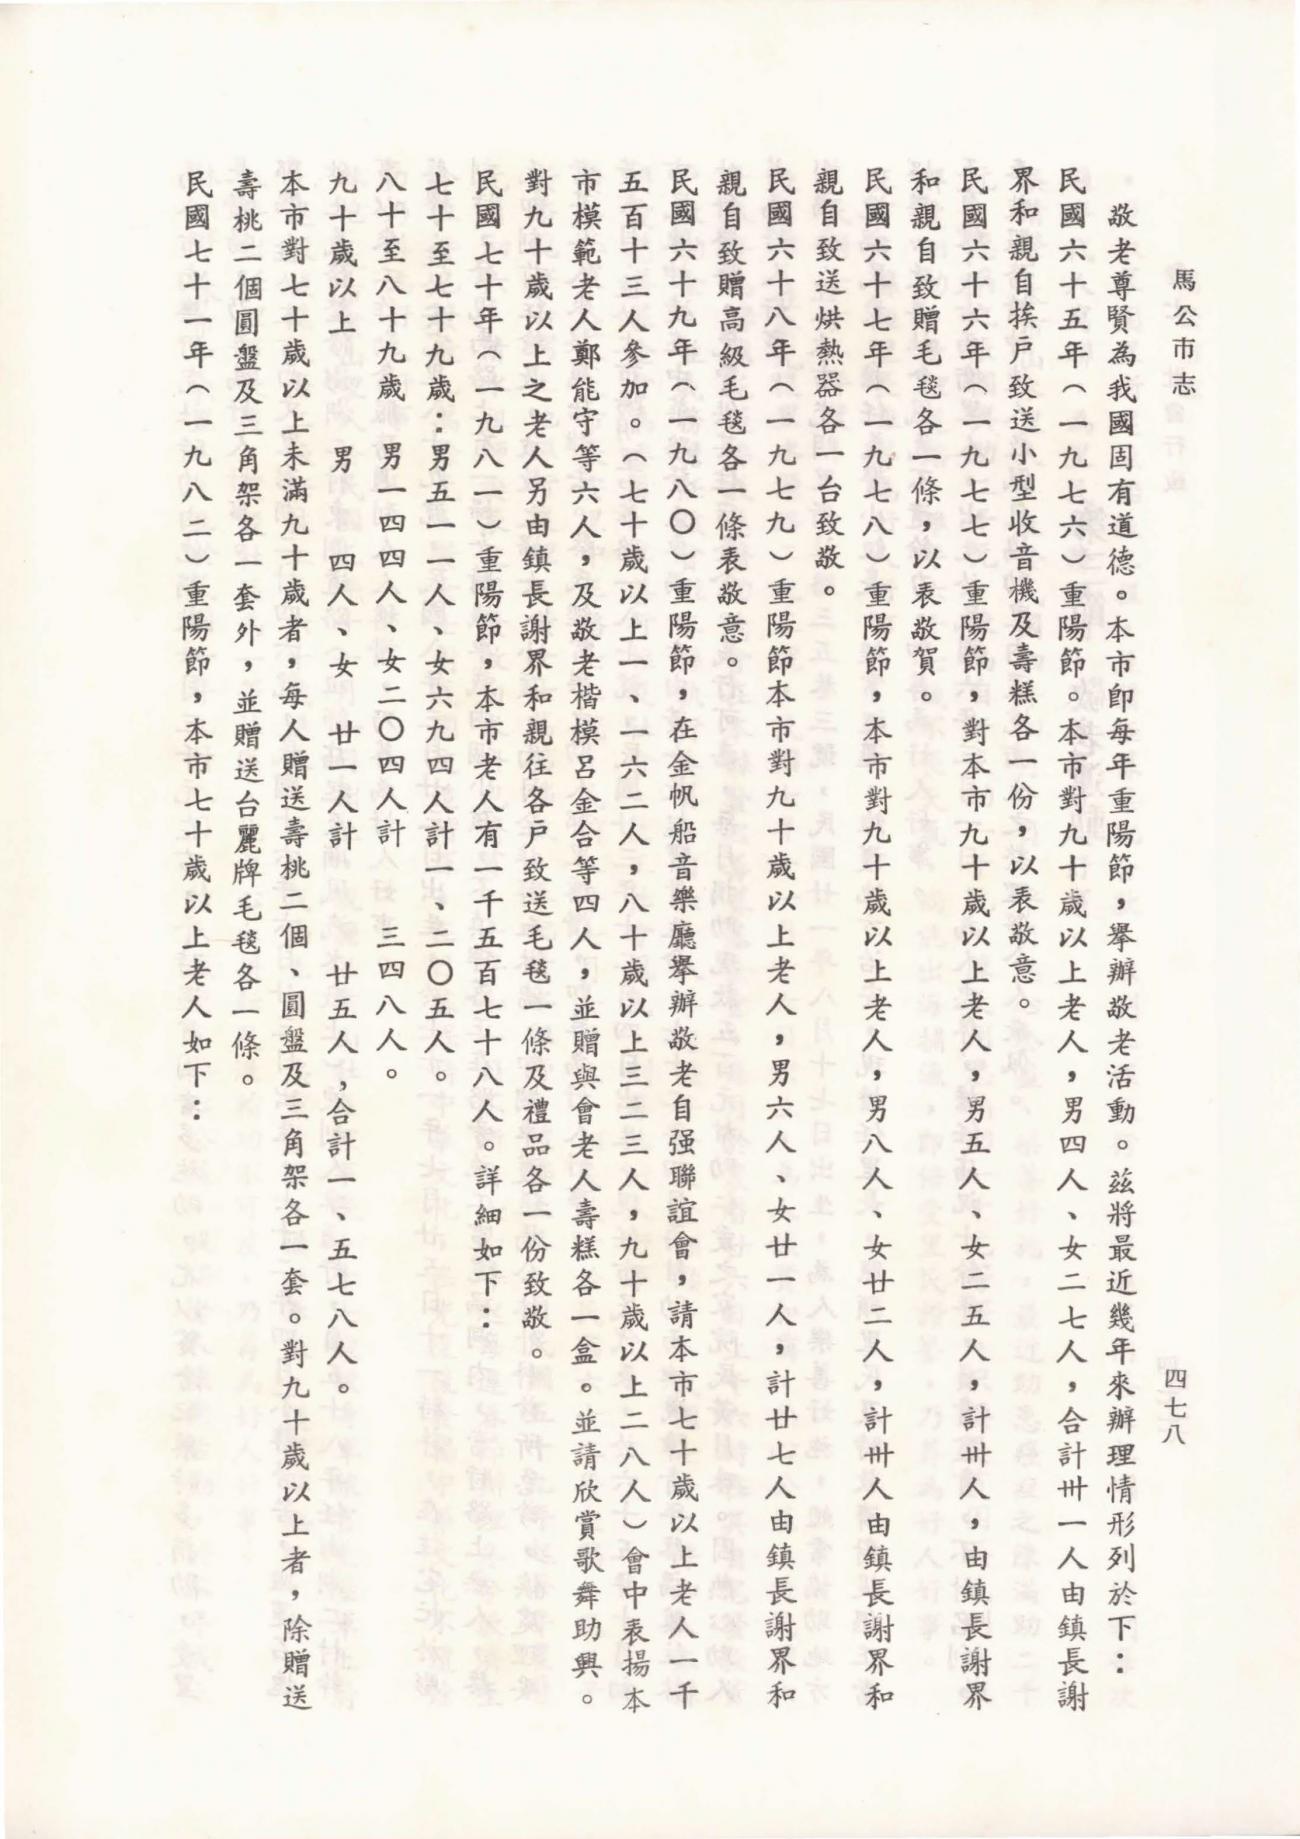 馬公市志
四七八
敬老尊賢為我國固有道德。本市卽每年重陽節，舉辦敬老活動。茲將最近幾年來辦理情形列於下：
民國六十五年（一九七六）重陽節。本市對九十歲以上老人，男四人、女二七人，合計卅一人由鎮長謝
界和親自挨戶致送小型收音機及壽糕各一份，以表敬意。
民國六十六年（一九七七）重陽節，對本市九十歲以上老人，男五人、女二五人，計卅人，由鎮長謝界
和親自致贈毛毯各一條，以表敬賀。
民國六十七年（一九七八）重陽節，本市對九十歲以上老人，男八人、女廿二人，計卅人由鎮長謝界和
親自致送烘熱器各一台致敬。
民國六十八年（一九七九）重陽節本市對九十歲以上老人，男六人、女廿一人，計廿七人由鎮長謝界和
親自致贈高級毛毯各一條表敬意。
民國六十九年（一九八〇）重陽節，在金帆船音樂廳舉辦敬老自强聯誼會，請本市七十歲以上老人一千
五百十三人參加。（七十歲以上一、一六二人，八十歲以上三二三人，九十歲以上二八人）會中表揚本
市模範老人鄭能守等六人，及敬老楷模呂金合等四人，並贈與會老人壽糕各一盒。並請欣賞歌舞助興。
對九十歲以上之老人另由鎮長謝界和親往各戶致送毛毯一條及禮品各一份致敬。
民國七十年（一九八一）重陽節，本市老人有一千五百七十八人。詳細如下：
七十至七十九歲：男五一一人、女六九四人計一、二〇五人。
八十至八十九歲 男一四四人、女二〇四人計 三四八人。
九十歲以上 男 四人、女 廿一人計 廿五人，合計一、五七八人。
本市對七十歲以上未滿九十歲者，每人贈送壽桃二個、圓盤及三角架各一套。對九十歲以上者，除贈送
壽桃二個圓盤及三角架各一套外，並贈送台麗牌毛毯各一條。
民國七十一年（一九八二）重陽節，本市七十歲以上老人如下：